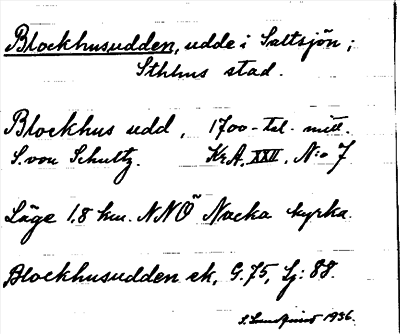 Blockhusudden, udde i Saltsjön;
Sthlms stad.
Blockhus udd, 1700-tal. mitt.
S. von Schultz. KrA, XXII, N:o 7
Läge 1,8 km. NNÖ Nacka kyrka.
Blockhusudden ek, G.75, Sj: 88.
S. 1936.